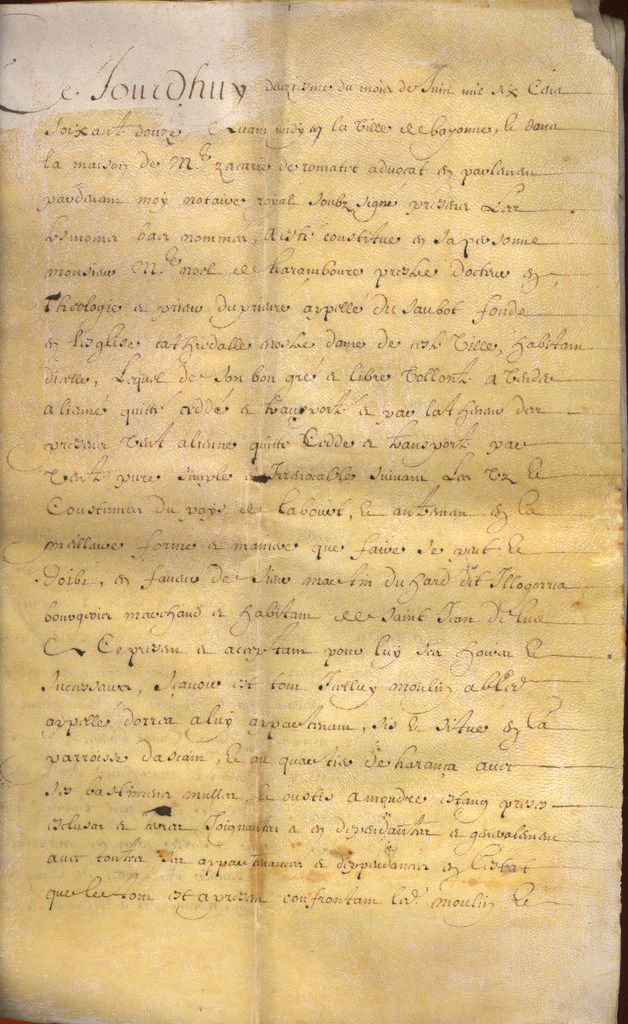 Ce Jourdhuy douziesme du mois de Juin mil six Cens
soixante douze & avant midy en la Ville de bayonne, & dans
la maison de Me zacarie de romatet advocat en parlement
pardevant moy notaire royal soubz signé presens Les
tesmoins bas nommes, A esté constitué en sa personne
monsieur Me noel de haramboure prestre docteur en
Theologie et prieur du prieuré appellé du saubot fondé
en l'esglise cathedralle nostre dame de cest Ville, habitant
dicelle, Lequel de son bon gré et libre Vollonté a Vendu
aliené quitté cedde et transporté et par la theneur des
presens Vent aliene quitte Cedde et transporte par
Vente pure simple et Irrevocable suivant Les Uz et
Coustumes du pays de labourt, et autrement en la
meillure forme et maniere que faire se peut et
doibt, en faveur de sieur martin duhard dit Illogorria
bourgeois marchand et habitant de saint Jean de luz
Ce present et acceptant pour luy ses hoirs et
successeurs, scavoir est tout Icelluy moulin a bled
appellé dorrea a luy appartenant, sis et situé en la
parroisse dascain, et au quartier de harança avec
ses bastimens mulles, et oustis a moudre estang preses
escluses et terres Joignantes et en dependantes et generalement
avec toutes ses appartenances et deppendances en l'estat
que le tout est a present confrontant led. moulin et